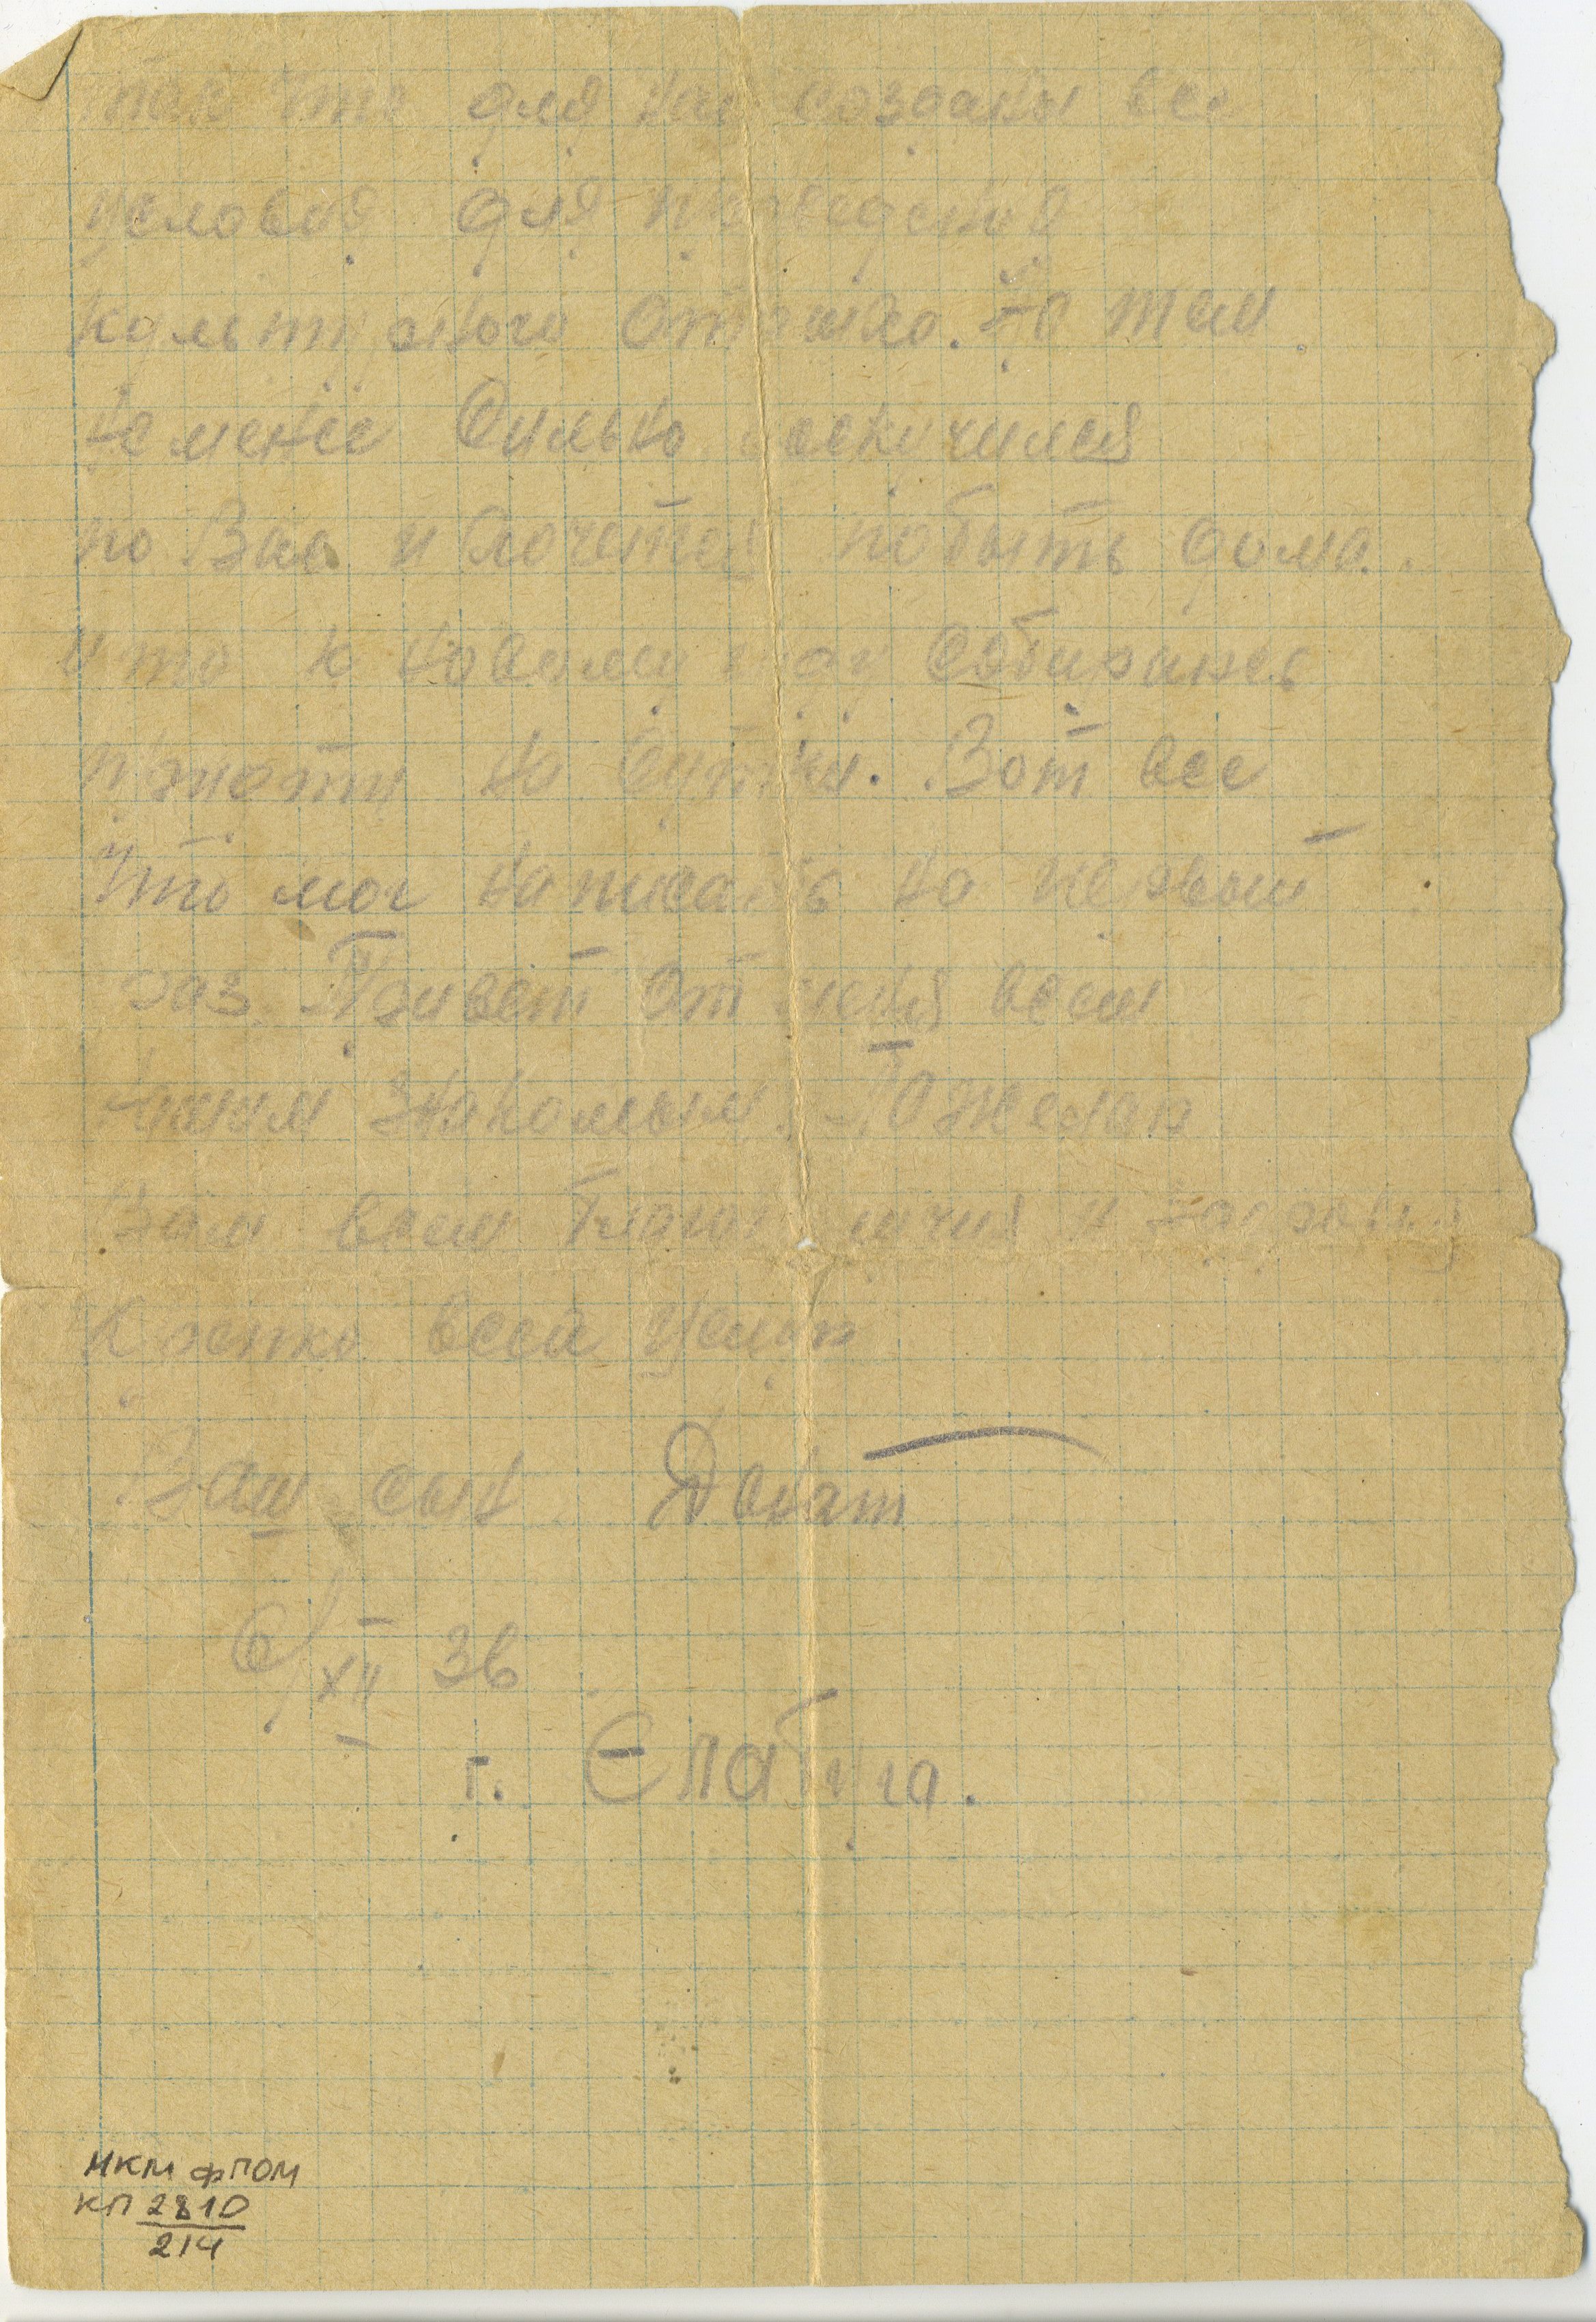 так что для нас созданы все
условия для проведения
культурного отдыха. Но тем
не менее Сильно соскучился
по Вас и Хочется побыть дома.
что к новому году Собираюсь
придти на Сутки. Вот все
Что мог написать на первый
раз. Привет от меня всем
нашим знакомым. Пожелаю
Вам всем благополучия и здоровья
Крепко всех Целую
Ваш сын Донат
6/XII 36
г. Елабуга.
МКМ ФПОМ
КП 2810
214